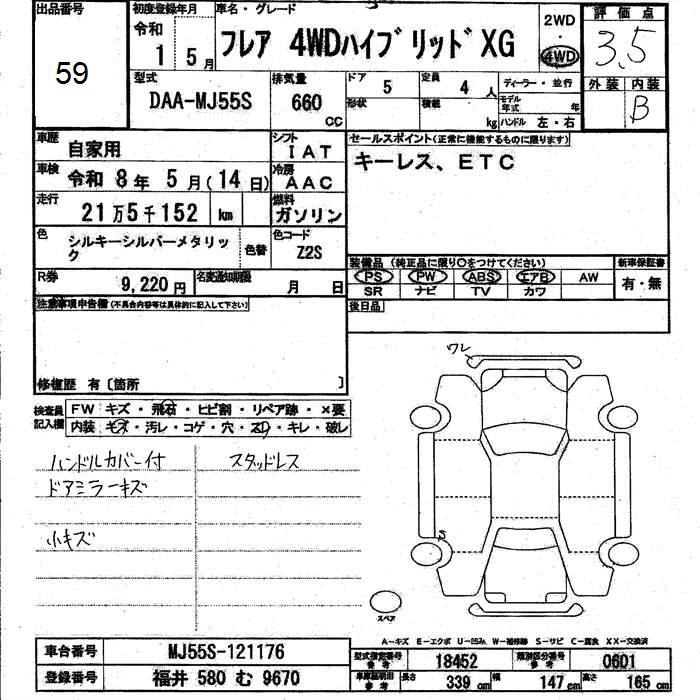 出品番号 59
初度登録年月 令和 1 5月
車名・グレード フレア 4WDハイブリッドXG
2WD・4WD
評価点 3.5
外装 内装 B
型式 DAA-MJ55S
排気量 660 CC
ドア 5
定員 4人
形状
積載 kg
ディーラー・並行
モデル年式 年
ハンドル 左・右
車歴 自家用
シフト IAT
車検 令和 8年 5月(14日)
冷房 AAC
走行 21万5千152 km
燃料 ガソリン
色 シルキーシルバーメタリック
色替
色コード Z2S
R券 9,220円
名変通知期限 月 日
セールスポイント(正常に機能するものに限ります)
キーレス、ETC
装備品(純正品に限り○をつけてください)
PS PW ABS エアB AW
SR ナビ TV カワ
新車保証書 有・無
後日品
注意事項申告欄(不具合内容等は具体的に記入して下さい)
修復歴 有〔箇所 〕
検査員記入欄
FW キズ・飛石・ヒビ割・リペア跡・×要
内装 キズ・汚レ・コゲ・穴・スレ・キレ・破レ
ハンドルカバー付 スタッドレス
ドアミラーキズ
小キズ
ワレ
S
スペア
A-キズ E-エクボ U-凹み W-補修跡 S-サビ C-腐食 XX-交換済
車台番号 MJ55S-121176
型式指定番号 参考 18452
類別区分番号 参考 0601
登録番号 福井 580 む 9670
車車証明旧 参考 長さ 339 cm 幅 147 cm 高さ 165 cm